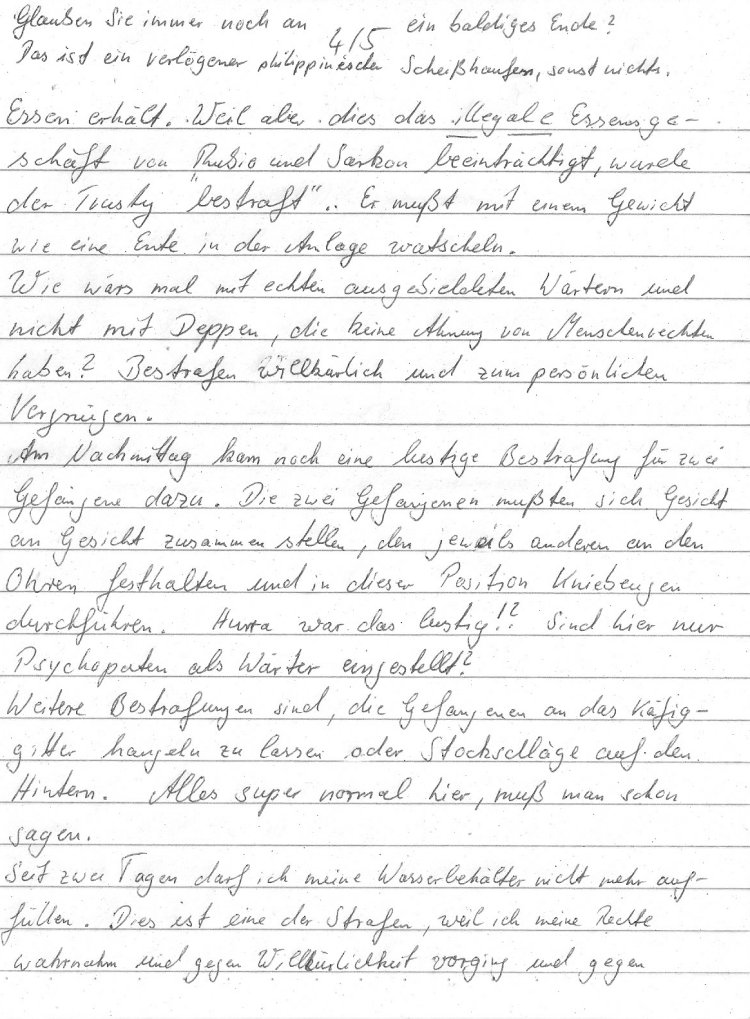 Glauben Sie immer noch an ein baldiges Ende?
4/5
Das ist ein verlogener philippinischer Scheißhaufen, sonst nichts.
Essen erhält. Weil aber dies das illegale Essensge-
schäft von Rubio und Sarkon beeinträchtigt, wurde
der Trusty "bestraft".. Er mußt mit einem Gewicht
wie eine Ente in der Anlage watscheln.
Wie wärs mal mit echten ausgebildeten Wärtern und
nicht mit Deppen, die keine Ahnung von Menschenrechten
haben? Bestrafen willkürlich und zum persönlichen
Vergnügen.
Am Nachmittag kam noch eine lustige Bestrafung für zwei
Gefangene dazu. Die zwei Gefangenen mußten sich Gesicht
an Gesicht zusammen stellen, den jeweils anderen an den
Ohren festhalten und in dieser Position Kniebeugen
durchführen. Hurra war das lustig!? Sind hier nur
Psychopaten als Wärter eingestellt?
Weitere Bestrafungen sind, die Gefangenen an das Käfig-
gitter hangeln zu lassen oder Stockschläge auf den
Hintern. Alles super normal hier, muß man schon
sagen.
Seit zwei Tagen darf ich meine Wasserbehälter nicht mehr auf-
füllen. Dies ist eine der Strafen, weil ich meine Rechte
wahrnahm und gegen Willkürlichkeit vorging und gegen